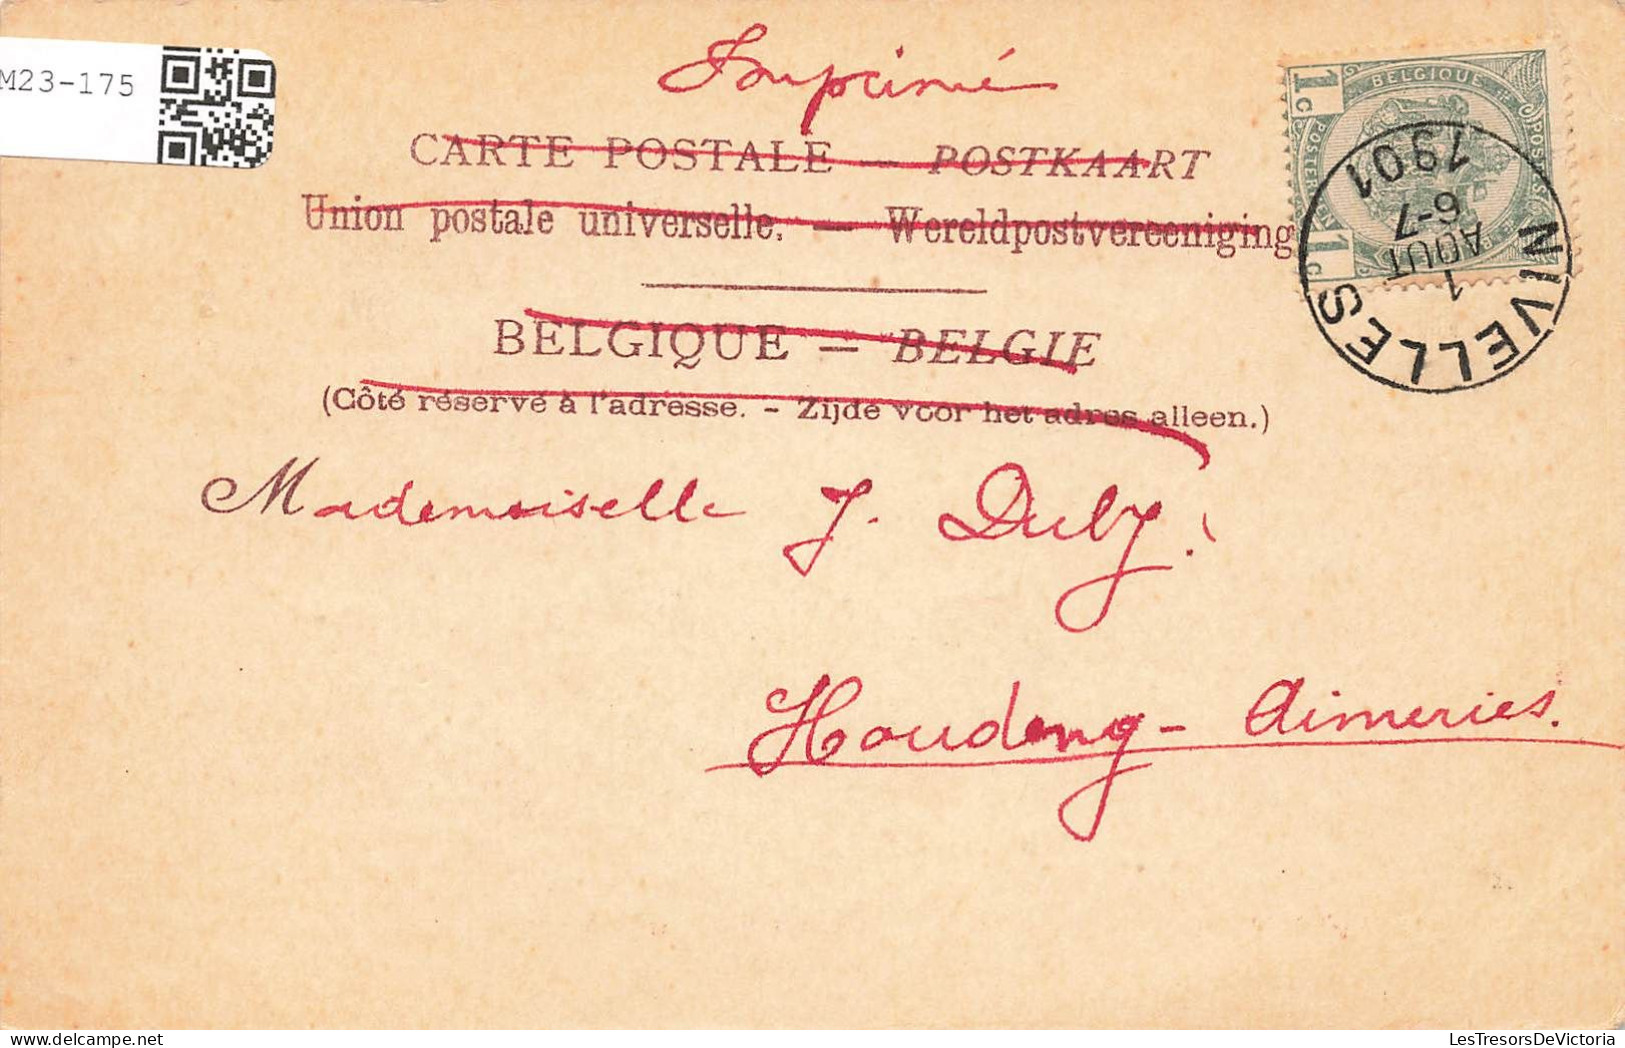 Imprimé
M23-175
CARTE POSTALE — POSTKAART
Union postale universelle. — Wereldpostvereeniging
BELGIQUE — BELGIE
(Côté réservé à l'adresse. - Zijde voor het adres alleen.)
Mademoiselle J. Duby.
Houdeng-Aimeries.
1c BELGIQUE 1c
NIVELLES
1
AOUT
6-7
1901
LesTresorsDeVictoria